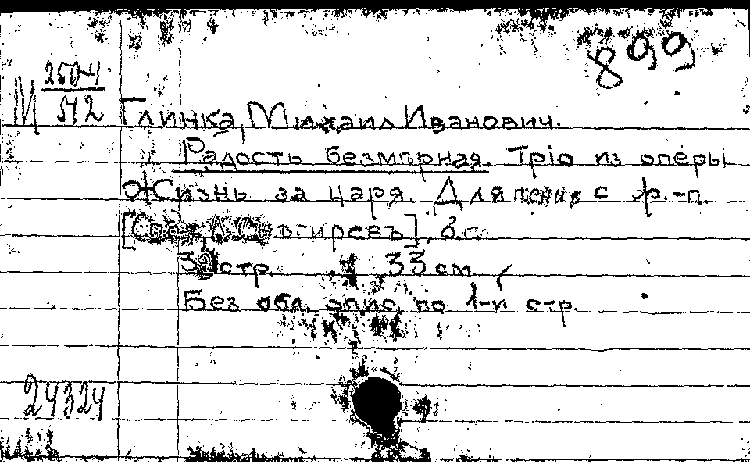 899
М 2504/512
Глинка, Михаил Иванович.
Радость безмѣрная. Тріо из оперы
Жизнь за царя. Для пения с ф.-п.
б.г.
стр. 33 см
Без обл. опис. по 1-й стр.
24324